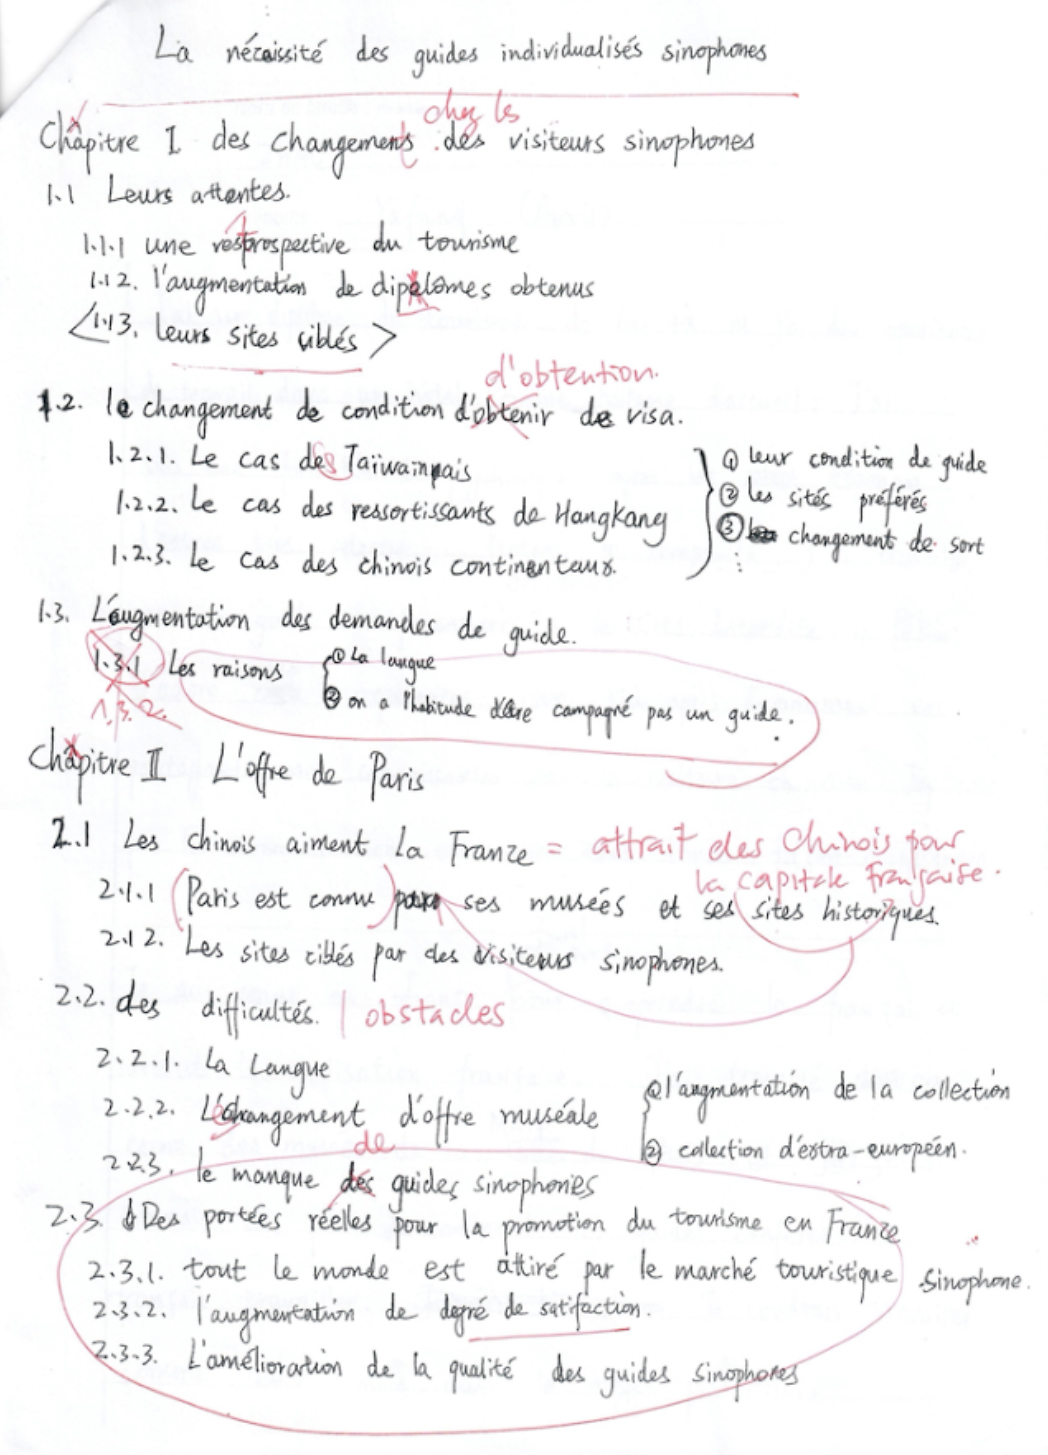 La nécessité des guides individualisés sinophones
chez les
Chapitre I des changements des visiteurs sinophones
1.1 Leurs attentes.
1.1.1 une restrospective du tourisme
1.1.2. l'augmentation de diplômes obtenus
<1.1.3. leurs sites ciblés>
d'obtention.
1.2. le changement de condition d'obtenir de visa.
1.2.1. Le cas des Taïwainpais
1.2.2. Le cas des ressortissants de Hangkang
1.2.3. Le cas des chinois continentaux.
① leur condition de guide
② les sités préférés
③ changement de sort
1.3. L'augmentation des demandes de guide.
1.3.1 Les raisons
1.3.2.
① La langue
② on a l'habitude campagné pas un guide.
Chapitre II L'offre de Paris
2.1 Les chinois aiment la Franze = attrait des Chinois pour
la capitale française.
2.1.1 (Paris est connu) ses musées et ses sites historiques.
2.1.2. Les sites ciblés par des visiteurs sinophones.
2.2. des difficultés. | obstacles
2.2.1. La Langue
2.2.2. L'échangement d'offre muséale
① l'augmentation de la collection
② collection d'extra-européen.
de
2.2.3. le manque des guides sinophones
2.3 Des portées réelles pour la promotion du tourisme en Franze
2.3.1. tout le monde est attiré par le marché touristique sinophone.
2.3.2. l'augmentation de degré de satifaction.
2.3.3. L'amélioration de la qualité des guides sinophones